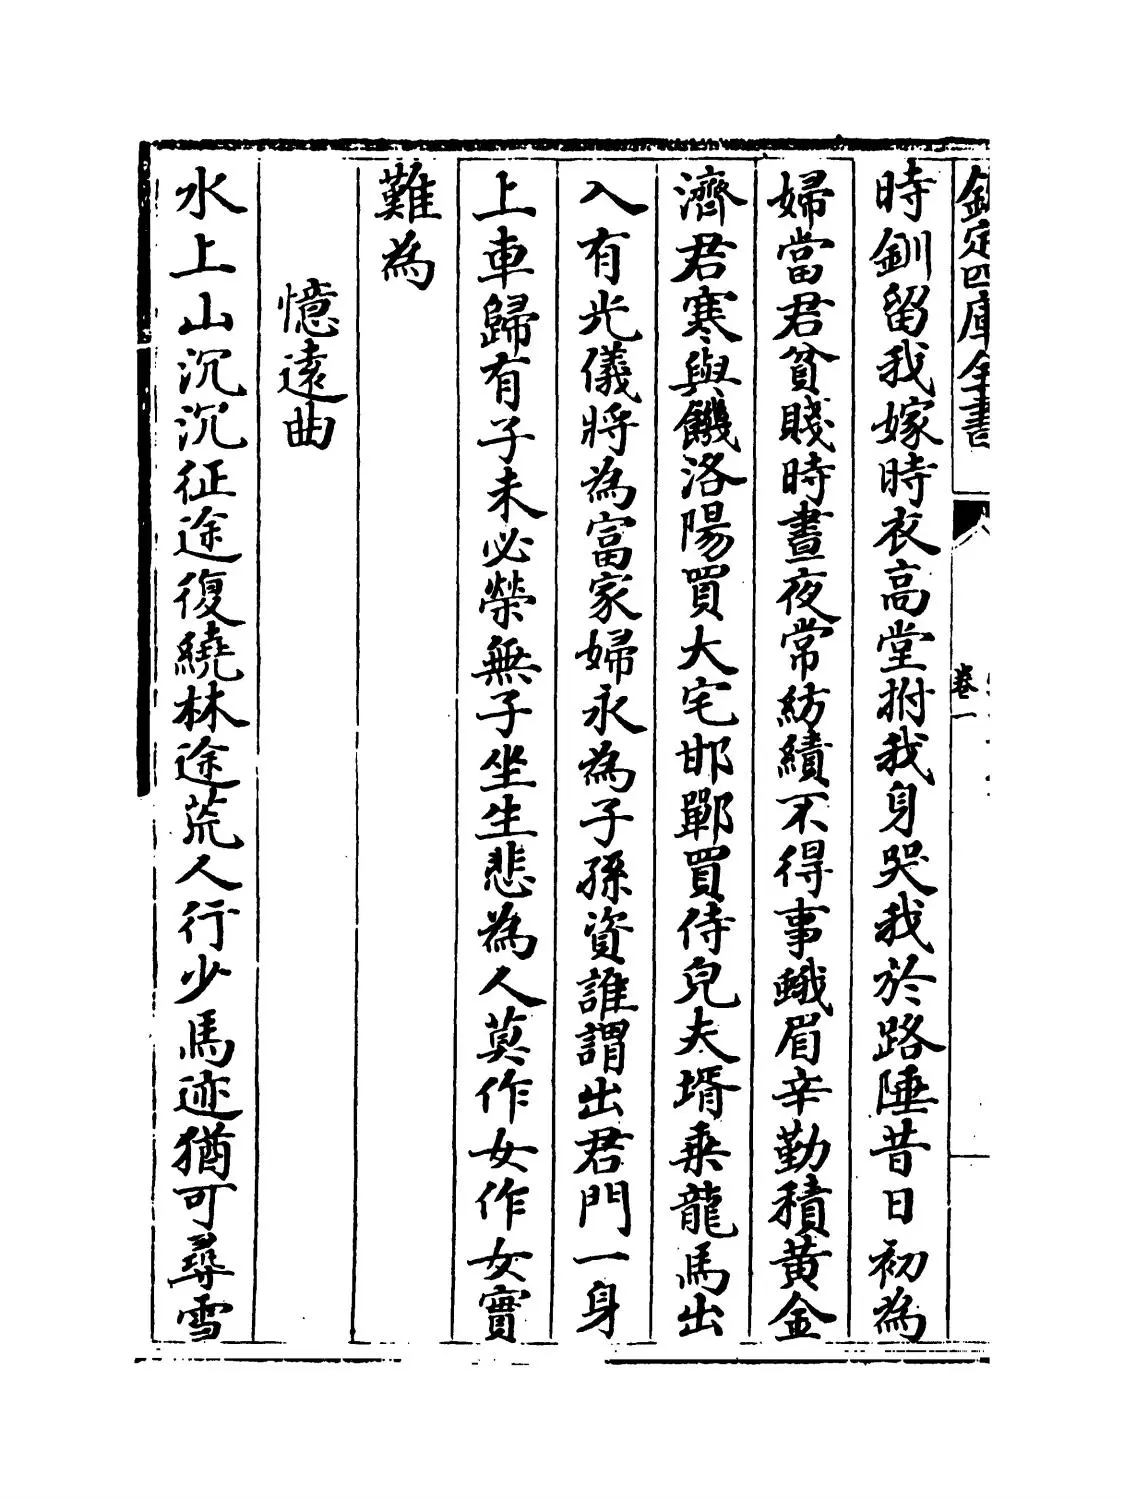 欽定四庫全書
卷一
時釧留我嫁時衣高堂拊我身哭我於路陲昔日初為
婦當君貧賤時晝夜常紡績不得事蛾眉辛勤積黃金
濟君寒與饑洛陽買大宅邯鄲買侍兒夫壻乘龍馬出
入有光儀將為富家婦永為子孫資誰謂出君門一身
上車歸有子未必榮無子坐生悲為人莫作女作女實
難為
憶遠曲
水上山沉沉征途復繞林途荒人行少馬迹猶可尋雪